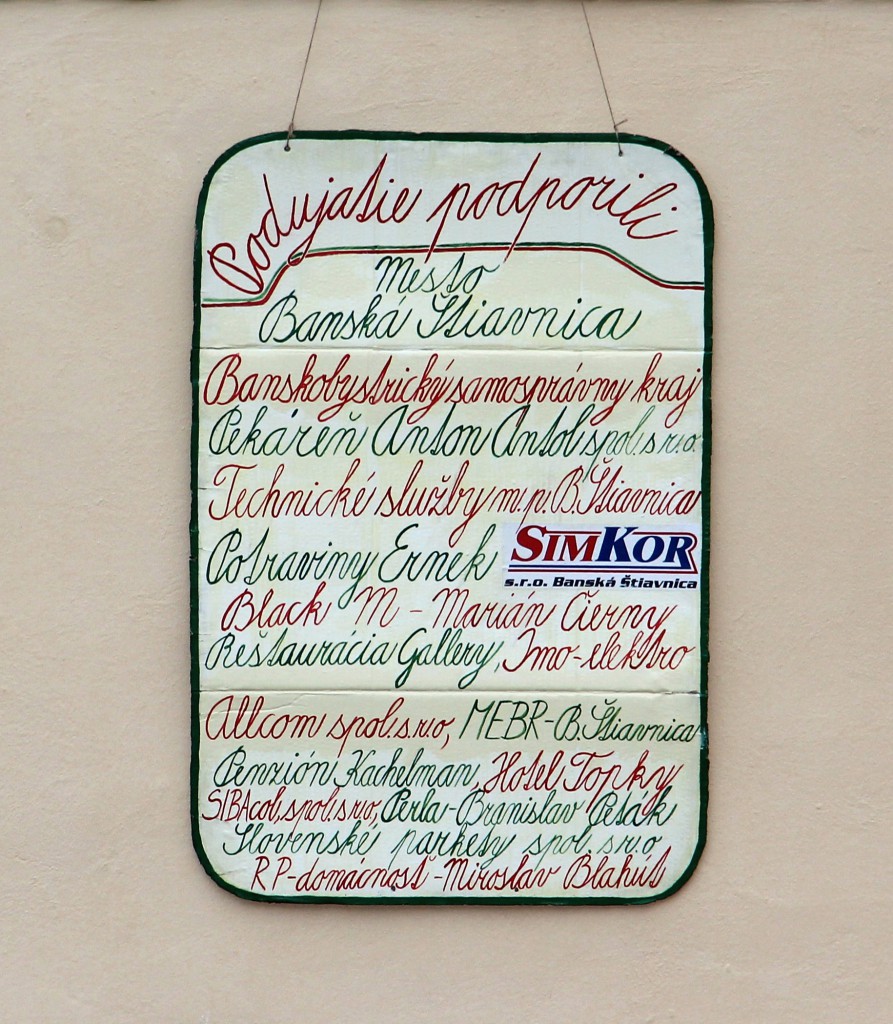 Podujatie podporili
Mesto
Banská Štiavnica
Banskobystrický samosprávny kraj
Pekáreň Anton Antol spol. s r.o.
Technické služby m.p. B. Štiavnica
Potraviny Ernek
SIMKOR
s.r.o. Banská Štiavnica
Black M - Marián Čierny
Reštaurácia Gallery, Imo-elektro
Allcom spol. s.r.o, MEBR-B. Štiavnica
Penzión Kachelman, Hotel Topky
SIBAcol, spol. s r.o, Perla-Branislav Peták
Slovenské parkety spol. s r.o
RP-domácnosť-Miroslav Blahút